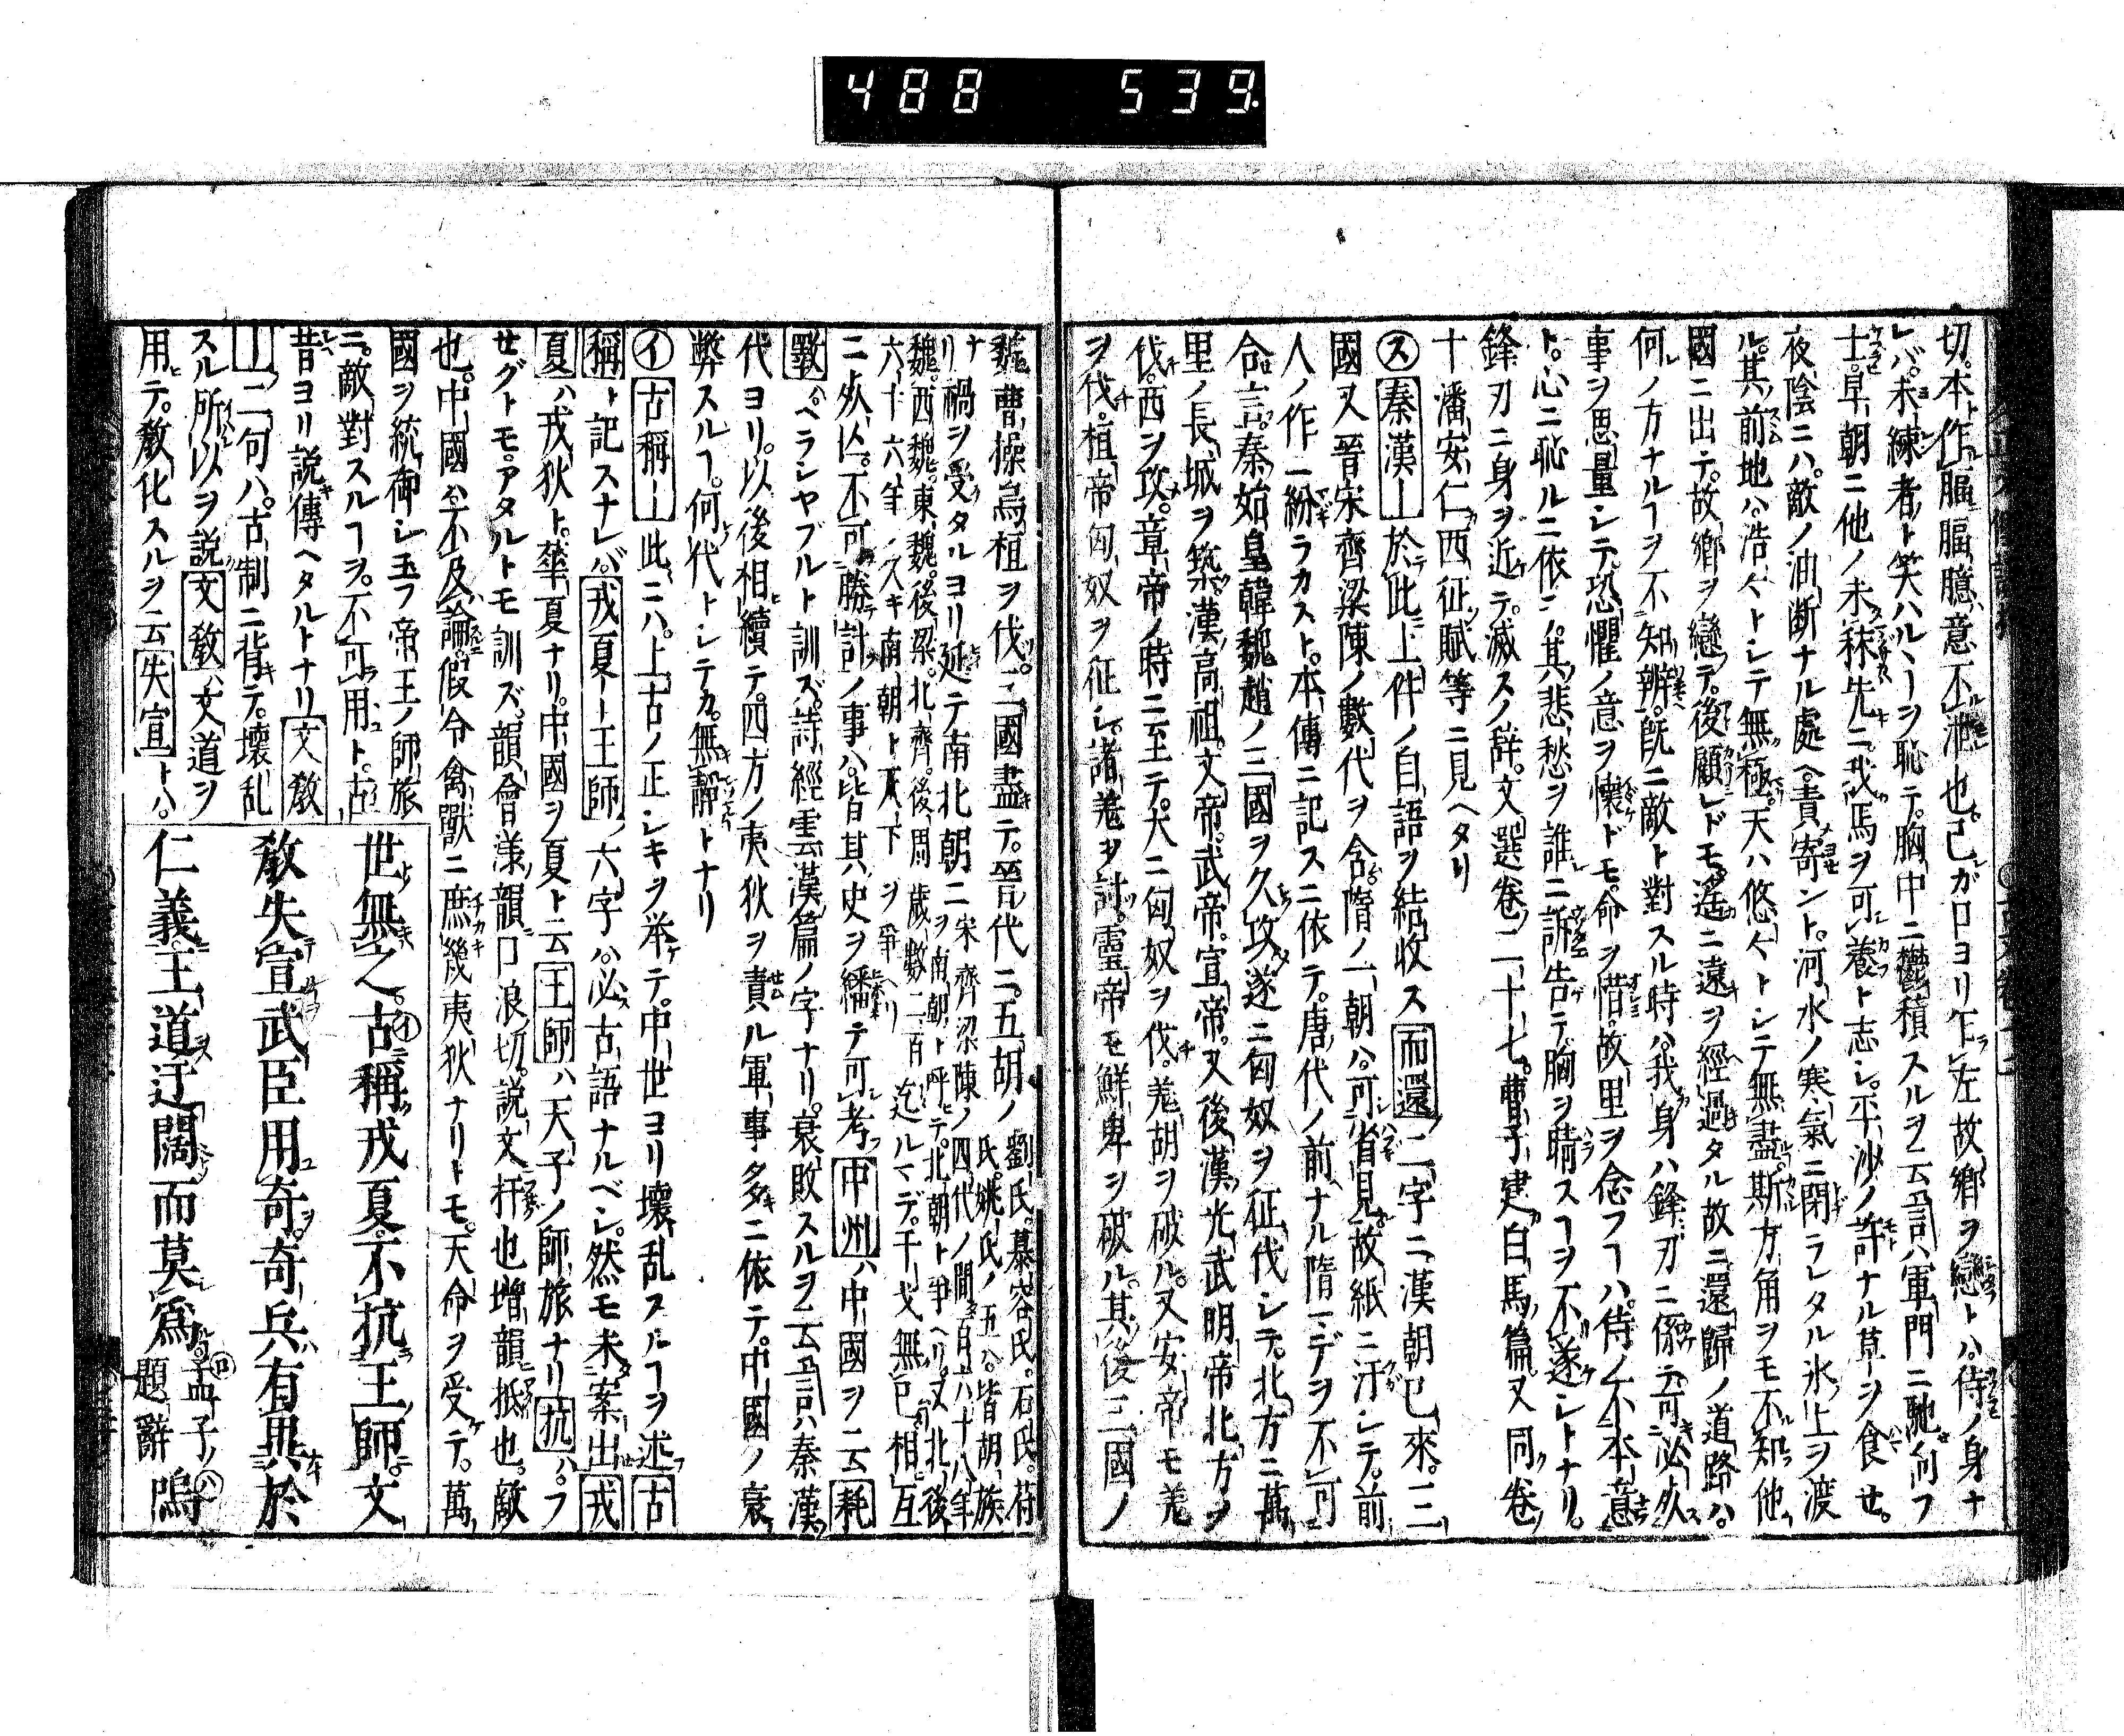 488 539.
切。本作腷。腷臆、意不泄也。己ガ口ヨリ乍左故郷ヲ戀トハ、侍ノ身ナ
レバ、未練者ト笑ハルヽヿヲ恥テ。胸中ニ鬱積スルヲ云
軍門ニ馳向フ
士。早朝ニ他ノ未秣先ニ。我馬ヲ可養ト志シ。平沙ノ許ナル草ヲ食セ。
夜陰ニハ。敵ノ油断ナル處ヘ。責寄ント。河水ノ寒氣ニ閉ラレタル氷上ヲ渡
ル。其前地ハ、浩々トシテ無極。天ハ悠々トシテ無盡。斯方角ヲモ不知他
國ニ出テ。故郷ヲ戀テ。後顧レドモ。遙ニ遠ヲ經過タル故ニ還歸ノ道路ハ。
何レノ方ナルヿヲ不知辨。既ニ敵ト對スル時ハ、我身ハ鋒刃ニ係テ可必死
事ヲ思量シテ。恐懼ノ意ヲ懐ドモ。命ヲ惜。故里ヲ念フヿハ。侍ノ不本意
ト。心ニ恥ルニ依テ。其悲愁ヲ誰ニ訴告テ。胸ヲ晴スヿヲ不遂シトナリ。
鋒刃ニ身ヲ近テ。滅スノ辞。文選卷二十七。曹子建白馬篇。又同卷
十潘安仁西征賦等ニ見ヘタリ
ス 秦漢ー 於此上件ノ自語ヲ結收ス 而還 二字ニ、漢朝已來。三
國又晉宋齊梁陳ノ數代ヲ含。隋ノ一朝ハ。可省見。故紙ニ汙シテ。前
人ノ作一紛ラカスト。本傳ニ記スニ依テ。唐代ノ前ナル隋一デヲ不可
合言。秦始皇韓魏趙ノ三國ヲ久攻。遂ニ匈奴ヲ征伐シテ。北方ニ萬
里ノ長城ヲ築。漢高祖。文帝。武帝。宣帝。又後漢光武明帝北方ヲ
伐。西ヲ攻。章帝ノ時ニ至テ。大ニ匈奴ヲ伐。羗胡ヲ破ル。又安帝モ羗
ヲ伐。桓帝匈奴ヲ征シ。諸羗ヲ討。靈帝モ鮮卑ヲ破ル。其後三國ノ
魏曹操烏桓ヲ伐。三國盡テ。晉代ニ。五胡ノ 劉氏。慕容氏。石氏。苻
氏。姚氏ノ五ハ。皆胡族
ナリ 禍ヲ受タルヨリ延テ南北朝ニ 宋齊梁陳ノ四代ノ間百六十八年
ヲ南朝ト呼ヒテ。北朝ト爭ヘリ。又北後
魏。西魏。東魏。後梁。北齊。後周 歳數二百
六十六年ノスキ南朝ト天下ヲ爭ヘリ 迄ルマデ。干戈無已相互
ニ死亡。不可勝計ノ事ハ。皆其史ヲ繙テ可考 中州 ハ、中國ヲ云 耗
斁 ハヘラシヤブルト訓ズ。詩經雲漢篇ノ字ナリ。衰敗スルヲ云
秦漢
代ヨリ。以後相續テ。四方ノ夷狄ヲ責ル軍事多キニ依テ。中國ノ衰
弊スルヿ。何代トシテカ。無辭トナリ
イ 古稱ー 此ニハ。上古ノ正シキヲ挙テ。中世ヨリ壊乱スルヿヲ述 古
稱 ト記スナレバ。戎夏ー王師 ノ六字ハ。必古語ナルベシ。然モ未案出 戎
夏 ハ戎狄ト。華夏ナリ。中國ヲ夏ト云 王師 ハ天子ノ師旅ナリ 抗 ハ。フ
セグトモ。アタルトモ訓ズ。韻會漾韻口浪切。説文扞也増韻抵也。敵
也。中國ハ不及論。假令禽獸ニ庶幾夷狄ナリトモ。天命ヲ受テ。萬
國ヲ統御シ玉フ帝王ノ師旅
ニ。敵對スルヿヲ。不可用ト。古
昔ヨリ説傳ヘタルトナリ 文敎
ー 二句ハ。古制ニ背テ。壊乱
スル所以ヲ説 文敎 ハ文道ヲ
用テ。敎化スルヲ云 失宣 トハ。
世無之古稱戎夏不抗王師文
敎失宣武臣用奇奇兵有異於
仁義王道迂闊而莫爲 孟子ノ
題辭 嗚